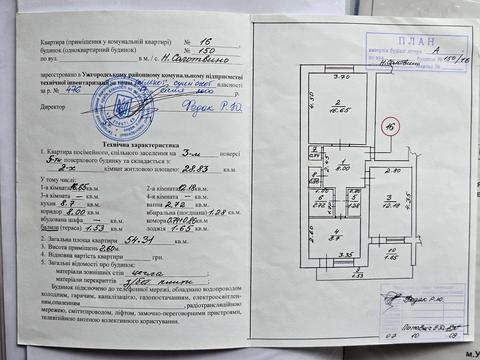 Квартира (приміщення у комунальній квартирі) № 16
будинок (одноквартирний будинок) № 150
по вул. в м. / с. Н. Солотвино
зареєстровано в Ужгородському районному комунальному підприємстві
технічної інвентаризації на праві
за р. № 476
Директор Федак Р.Ю.
Технічна характеристика
1. Квартира посімейного, спільного заселення на 3-м поверсі
5-ти поверхового будинку та складається з:
2-х кімнат житловою площею: 28.83 кв.м.
У тому числі:
1-а кімната 16.65 кв.м. 2-а кімната 12.18 кв.м.
3-я кімната – кв.м. 4-я кімната – кв.м.
кухня 8.7 кв.м. ватна 2.72 кв.м.
коридор 8.00 кв.м. вбиральна (поєднана) 1.28 кв.м.
вбудована шафа – кв.м. комора кв.м.
балкон (тераса) 1.53 кв.м. лоджія 1.65 кв.м.
2. Загальна площа квартири 54.31 кв.м.
3. Висота квартири 2.60 м.
4. Відновна вартість квартири грн.
5. Загальні відомості про будинок:
матеріали зовнішніх стін цегла
матеріали перекриття з/бет. плити
Будинок підключено до телефонної мережі, обладнано водопроводом
холодним, гарячим, каналізацією, газопостачанням, електроосвітлен-
ням, опаленням , радіотрансляційною
мережею, сміттєпроводом, ліфтом, замочно-переговорними пристроями,
телевізійною антеною колективного користування.
ПЛАН
А
Н. Солотвино
150/16
3.70
4.50
2
16.65
16
1
8.00
2.45
3
12.18
2.80
4.35
4
8.7
2.60
3.35
10
1.65
1.53
Федак Р.Ю.
07 10 09
м.У